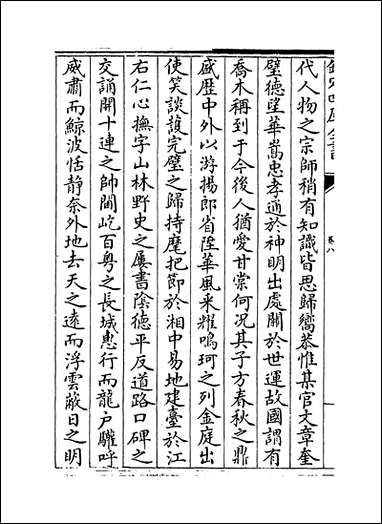 欽定四庫全書
卷八
代人物之宗師稍有知識皆思歸嚮恭惟某官文章奎
璧德望華嵩忠孝通於神明出處關於世運故國謂有
喬木稱到于今後人猶愛甘棠何況其子方春秋之鼎
盛歷中外以游揚郎省陞華風采耀鳴珂之列金庭出
使笑談護完璧之歸持麾把節於湘中易地建臺於江
右仁心撫字山林野史之屢書陰德平反道路口碑之
交誦開十連之帥閫屹百粤之長城惠行而龍户驩呼
威肅而鯨波恬靜奈外地去天之遠而浮雲蔽日之明